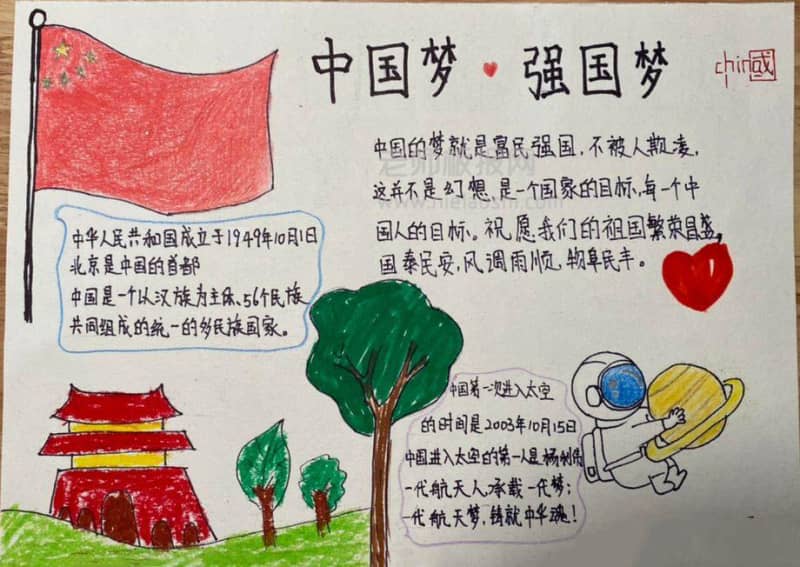 中国梦·强国梦
chin國
中国的梦就是富民强国,不被人欺凌,
这并不是幻想,是一个国家的目标,每一个中
国人的目标。祝愿我们的祖国繁荣昌盛,
国泰民安,风调雨顺,物阜民丰。
中华人民共和国成立于1949年10月1日
北京是中国的首都
中国是一个以汉族为主体、56个民族
共同组成的统一的多民族国家。
中国第一次进入太空
的时间是2003年10月15日
中国进入太空的第一人是杨利伟
一代航天人,承载一代梦;
一代航天梦,铸就中华魂!